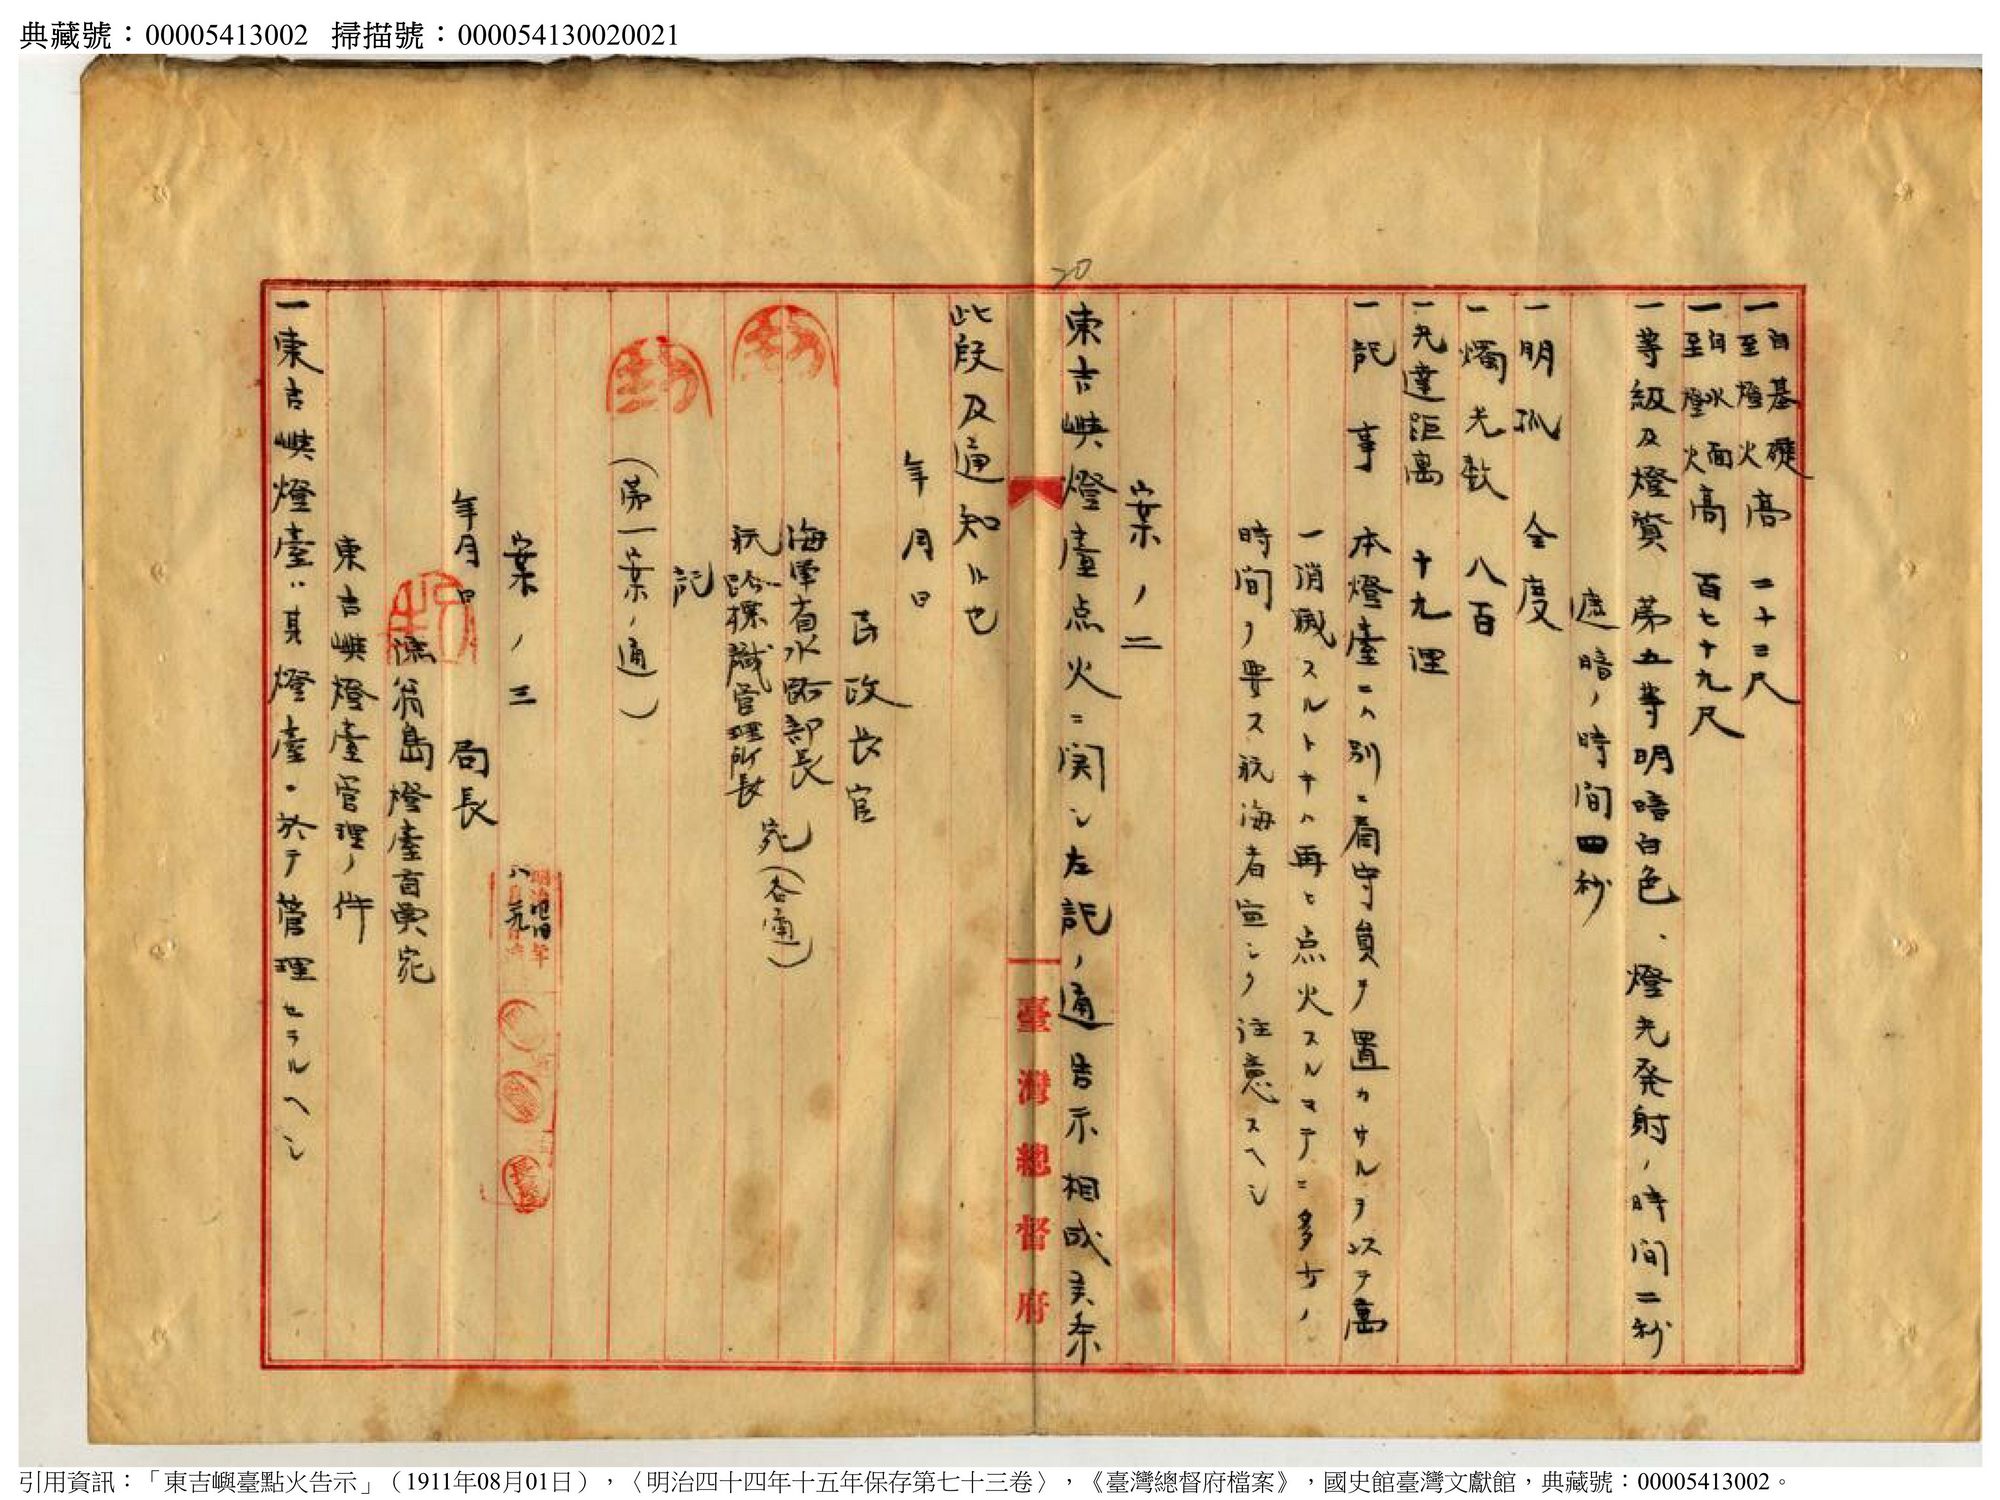 典藏號：00005413002 掃描號：000054130020021
20
一自基礎至燈火高 二十三尺
一自水面至燈火高 百七十九尺
一等級及燈質 第五等明暗白色、燈光発射ノ時間二秒
遮暗ノ時間四秒
一明弧 全度
一燭光数 八百
一光達距离 十九浬
一記事 本燈臺ニハ別ニ看守員ヲ置カサルヲ以テ萬
一消滅スルトキハ再ヒ点火スルマテニ多少ノ
時間ヲ要ス航海者宜シク注意スヘシ
案ノ二
東吉嶼燈臺点火ニ関シ左記ノ通告示相成候条
臺灣總督府
此段及通知候也
年月日
民政長官
海軍省水路部長
航路標識管理所長
宛(各通)
記
(第一案ノ通)
案ノ三
明治四十四年
八月
年月日 局長
漁翁島燈臺首員宛
東吉嶼燈臺管理ノ件
一東吉嶼燈臺ハ其燈臺ニ於テ管理セラルヘシ
引用資訊：「東吉嶼臺點火告示」（1911年08月01日），〈明治四十四年十五年保存第七十三卷〉，《臺灣總督府檔案》，國史館臺灣文獻館，典藏號：00005413002。